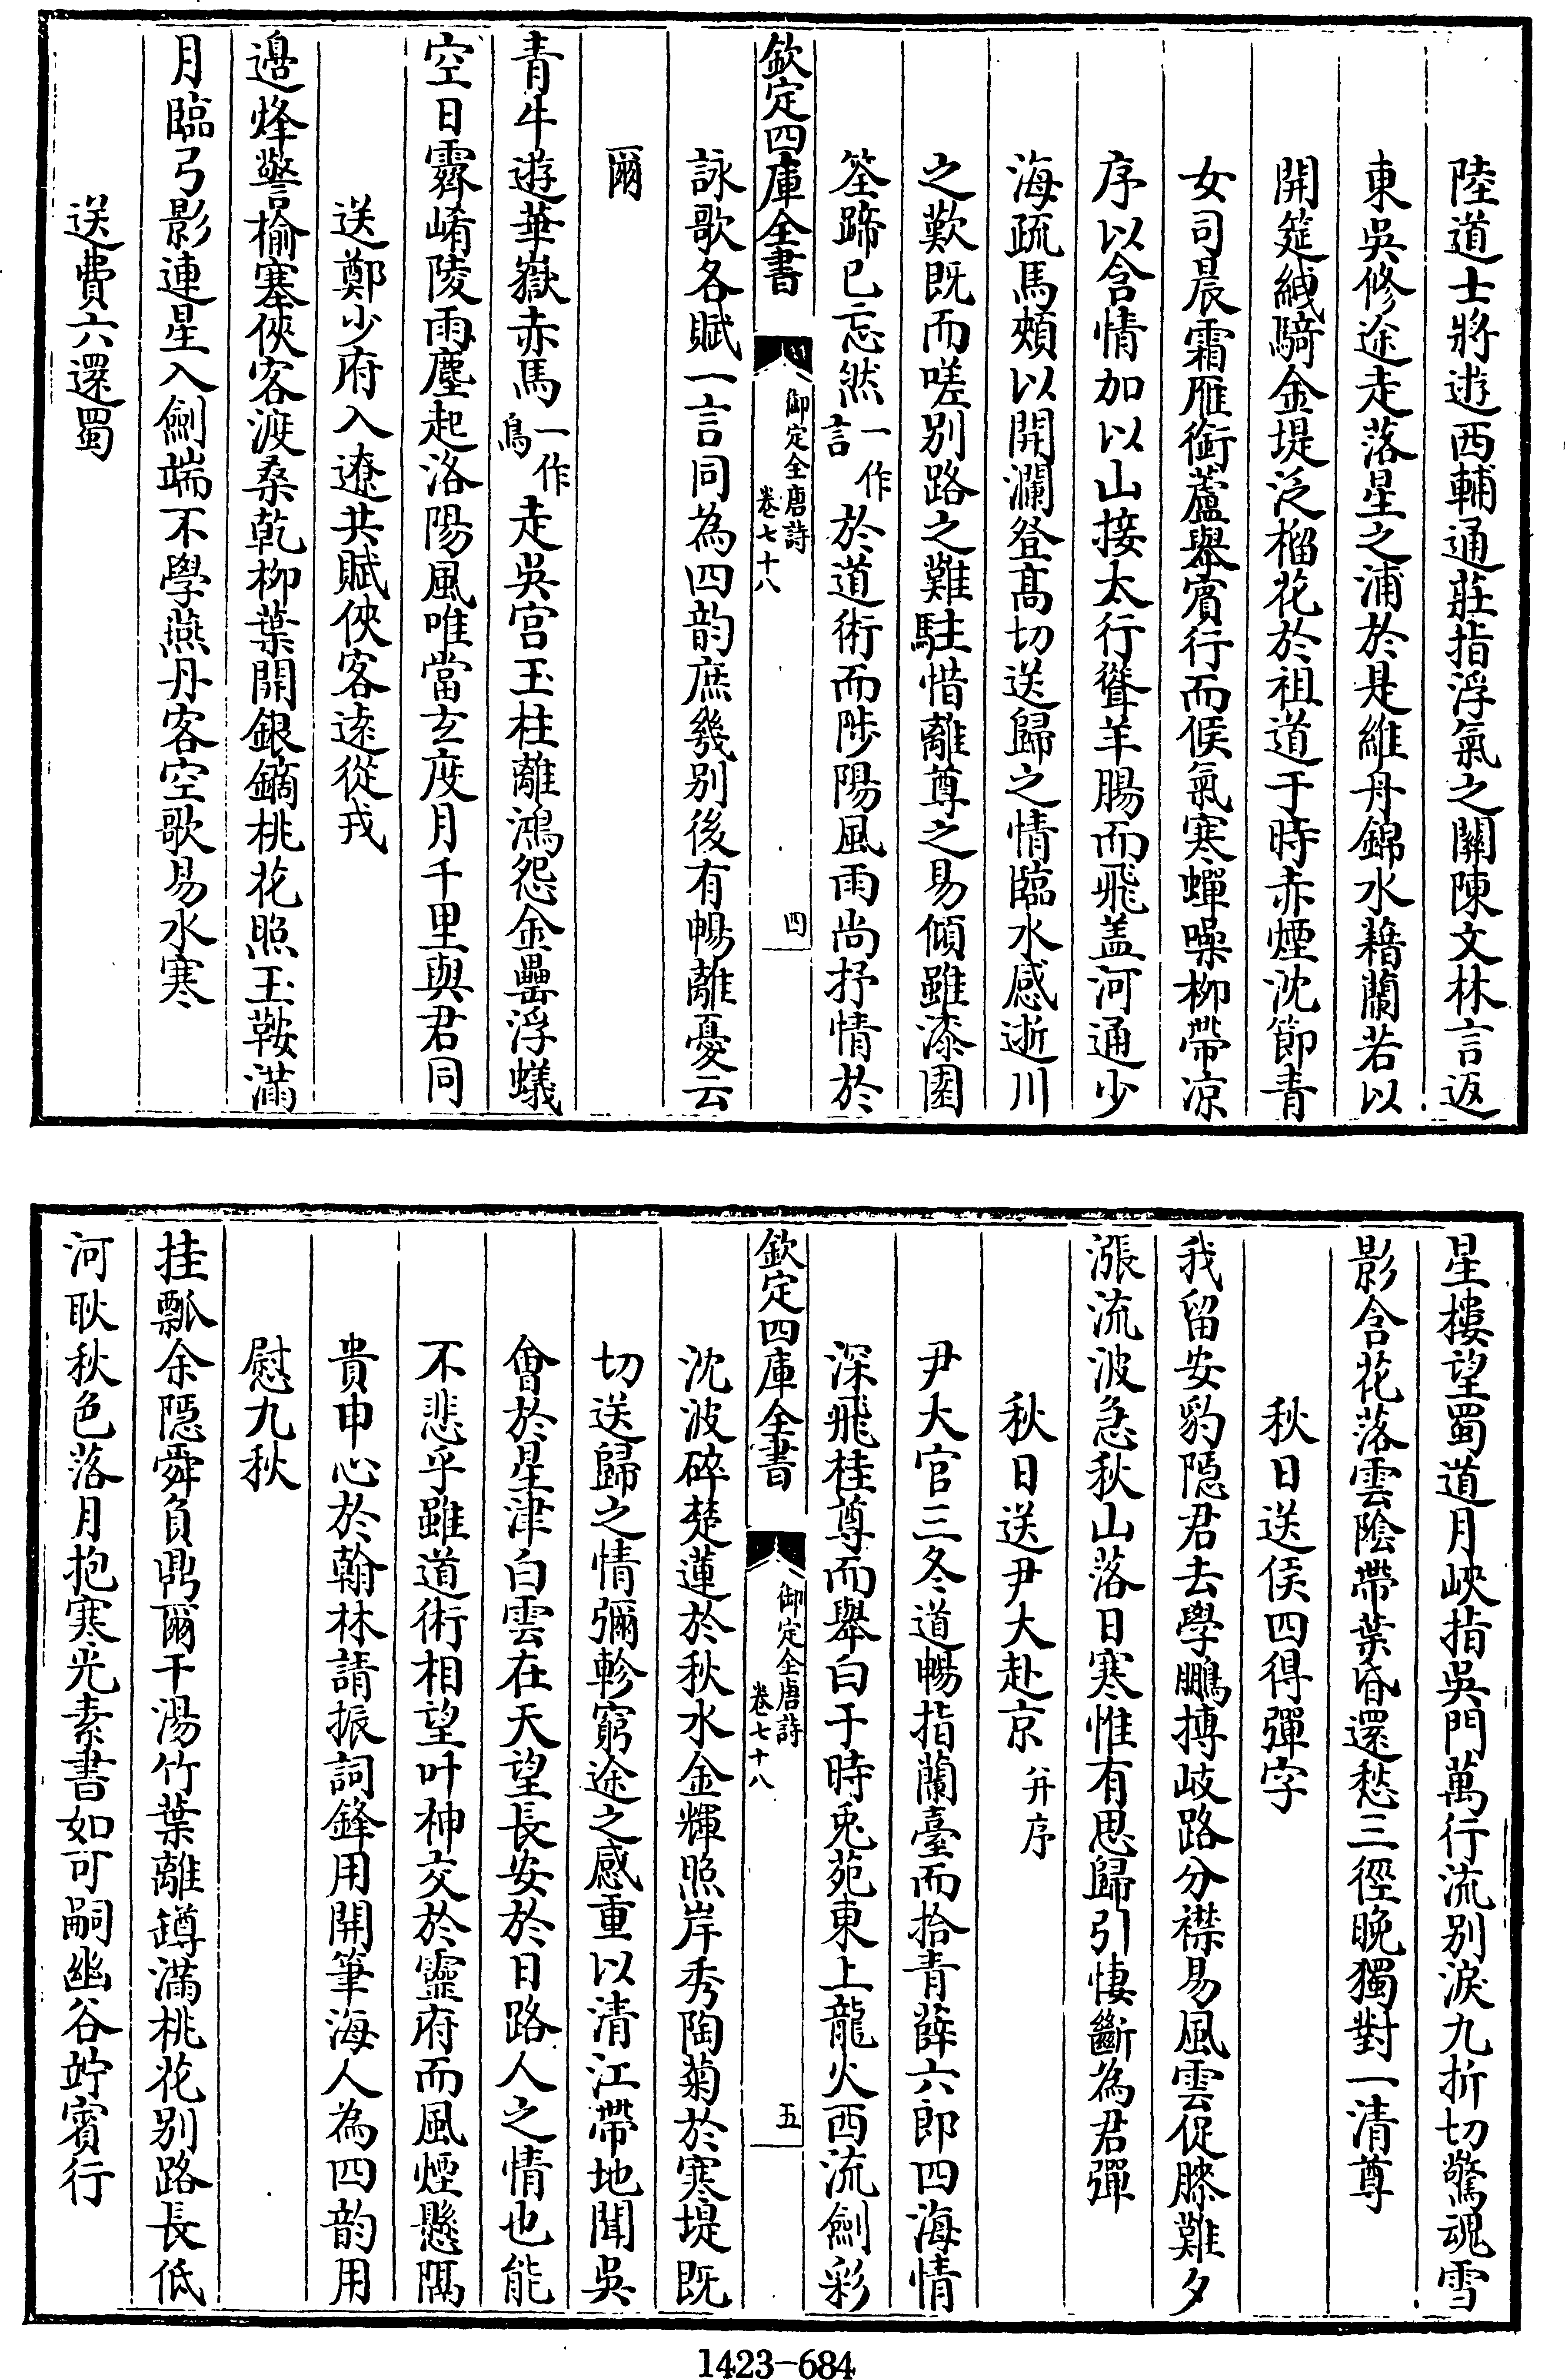 陸道士將遊西輔通莊指浮氣之關陳文林言返
東吳修途走落星之浦於是維舟錦水藉蘭若以
開筵絏騎金堤泛榴花於祖道于時赤煙沈節青
女司晨霜雁銜蘆舉賓行而候氣寒蟬噪柳帶凉
序以含情加以山接太行聳羊腸而飛蓋河通少
海疏馬頰以開瀾登髙切送歸之情臨水感逝川
之歎既而嗟别路之難駐惜離尊之易傾雖漆園
筌蹄已忘然一作言於道術而陟陽風雨尚抒情於
欽定四庫全書
御定全唐詩
卷七十八
四
詠歌各賦一言同為四韵庶幾别後有暢離憂云
爾
青牛遊華嶽赤馬一作鳥走吳宫玉柱離鴻怨金罍浮蟻
空日霽崤陵雨塵起洛陽風唯當玄度月千里與君同
送鄭少府入遼共賦俠客逺從戎
邊烽警榆塞俠客渡桑乾柳葉開銀鏑桃花照玉鞍滿
月臨弓影連星入劍端不學燕丹客空歌易水寒
送費六還蜀
星樓望蜀道月峽指吳門萬行流别淚九折切驚魂雪
影含花落雲隂帶葉昏還愁三徑晚獨對一清尊
秋日送侯四得彈字
我留安豹隠君去學鵬摶岐路分襟易風雲促膝難夕
漲流波急秋山落日寒惟有思歸引悽斷為君彈
秋日送尹大赴京并序
尹大官三冬道暢指蘭臺而拾青薛六郎四海情
深飛桂尊而舉白于時兎苑東上龍火西流劍彩
欽定四庫全書
御定全唐詩
卷七十八
五
沈波碎楚蓮於秋水金輝照岸秀陶菊於寒堤既
切送歸之情彌軫窮途之感重以清江帶地聞吳
會於星津白雲在天望長安於日路人之情也能
不悲乎雖道術相望叶神交於靈府而風煙懸隔
貴申心於翰林請振詞鋒用開筆海人為四韵用
慰九秋
挂瓢余隠舜負鼎爾干湯竹葉離罇滿桃花别路長低
河耿秋色落月抱寒光素書如可嗣幽谷竚賓行
1423-684